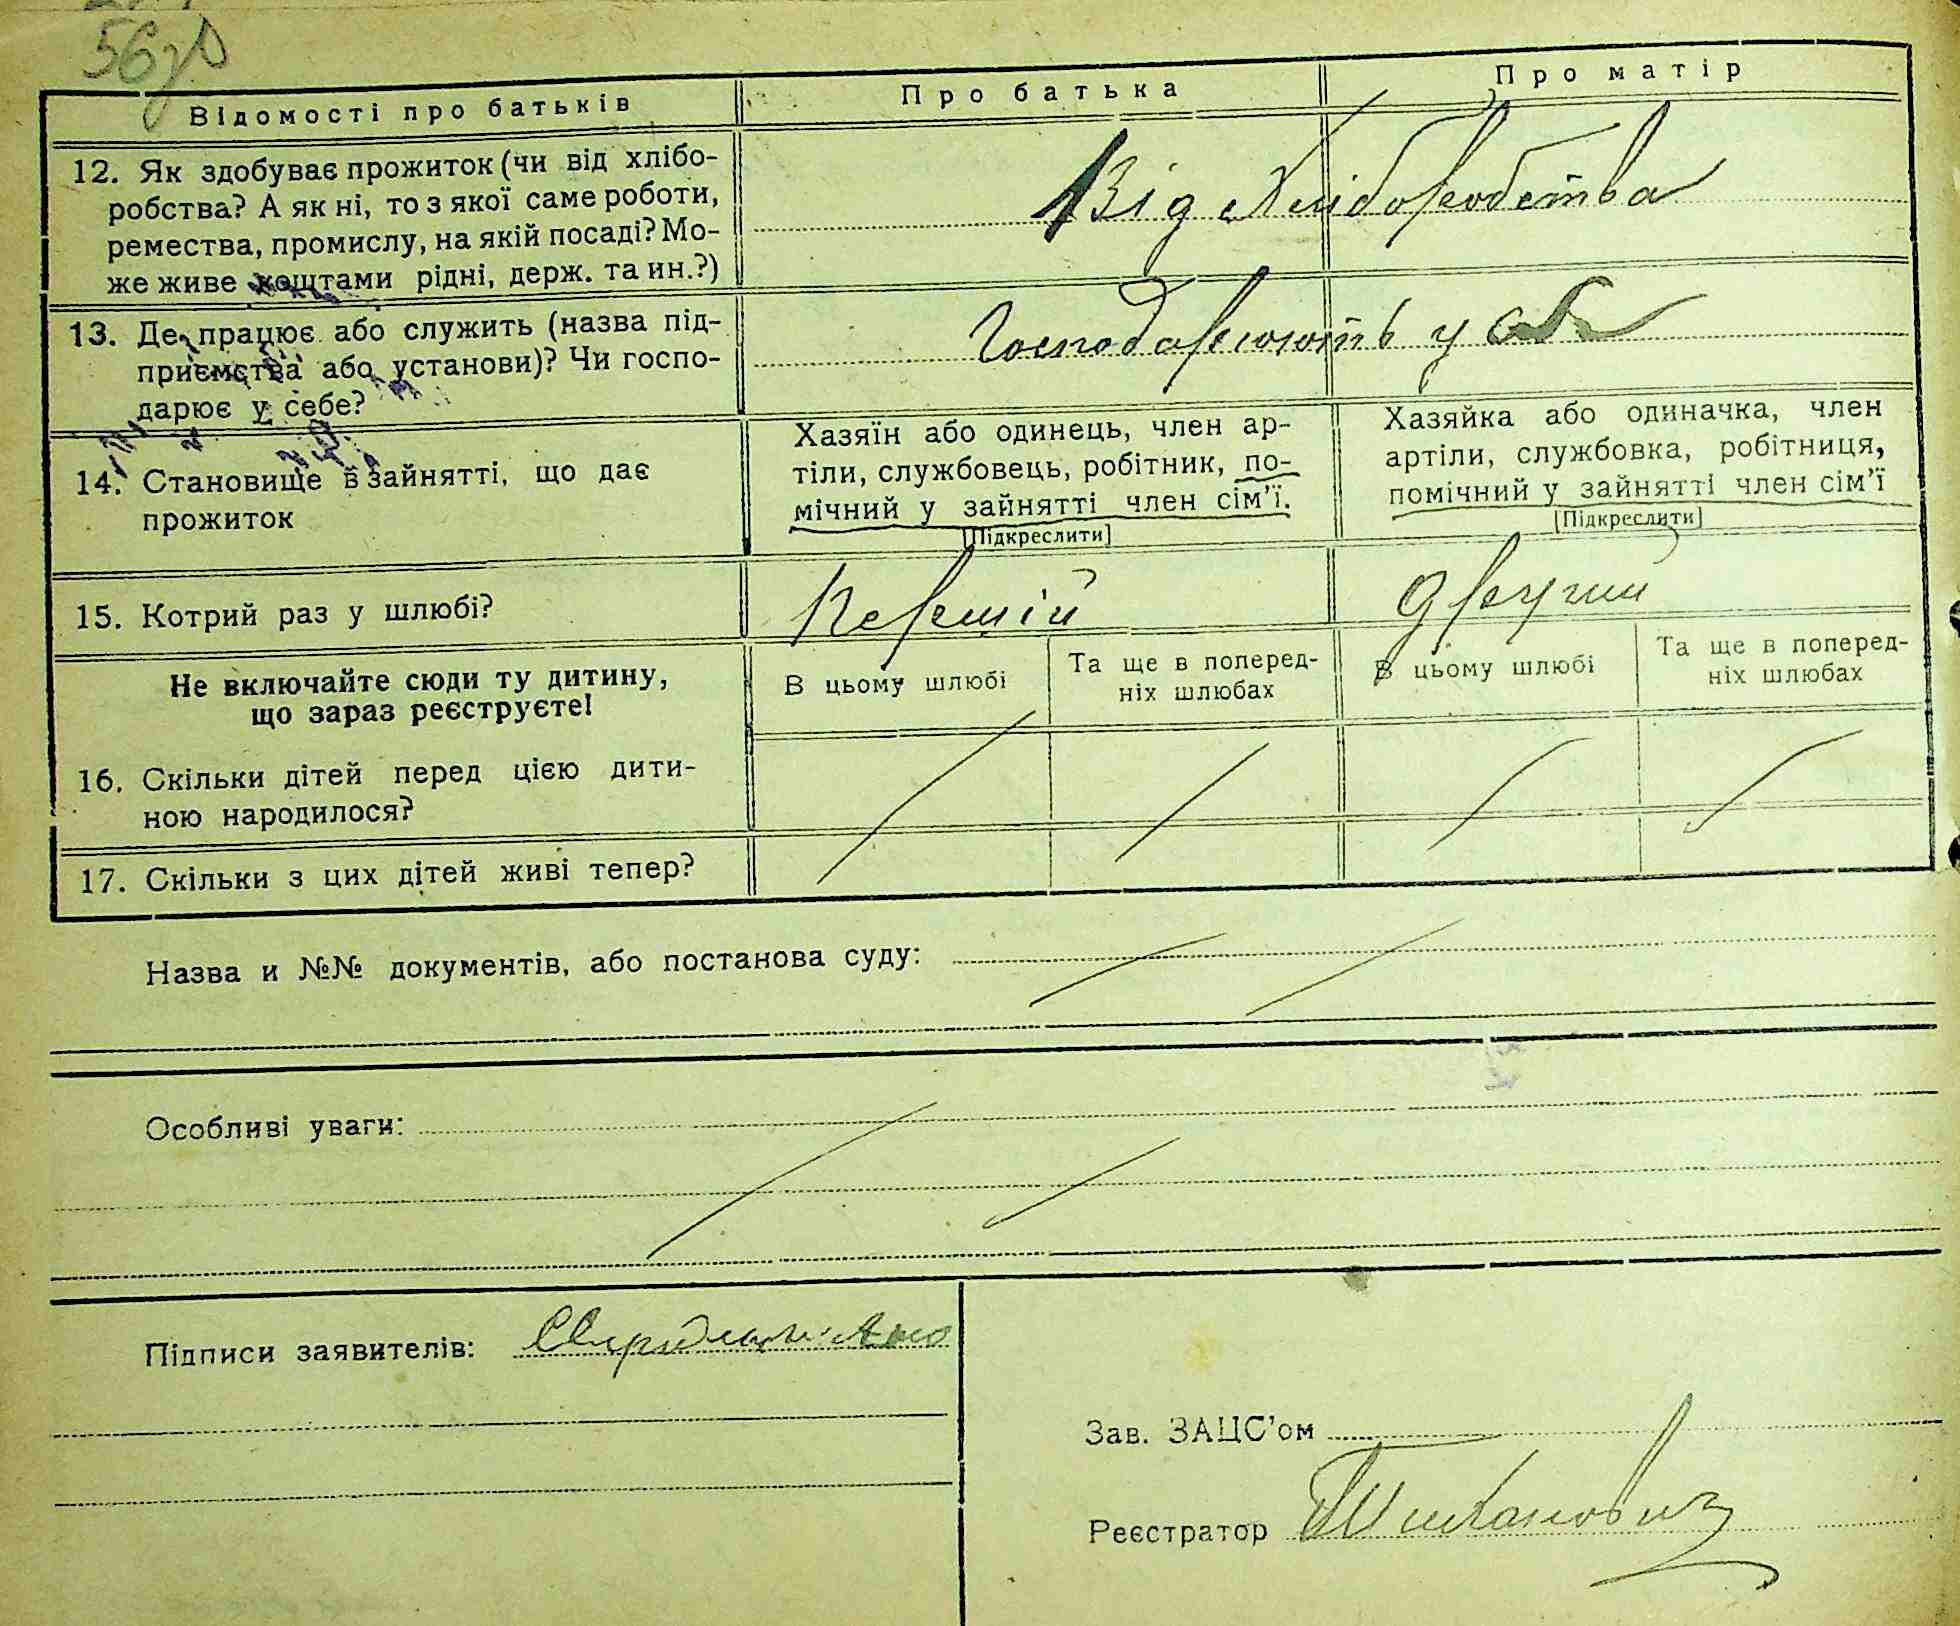 56зв
Відомості про батьків
Про батька
Про матір
12. Як здобуває прожиток (чи від хлібо-
робства? А як ні, то з якої саме роботи,
ремества, промислу, на якій посаді? Мо-
же живе коштами рідні, держ. та ин.?)
Від Хліборобства
13. Де працює або служить (назва під-
приємства або установи)? Чи госпо-
дарює у себе?
Господарюють у себе
14. Становище в зайнятті, що дає
прожиток
Хазяїн або одинець, член ар-
тіли, службовець, робітник, по-
мічний у зайнятті член сім'ї.
[Підкреслити]
Хазяйка або одиначка, член
артіли, службовка, робітниця,
помічний у зайнятті член сім'ї
[Підкреслити]
15. Котрий раз у шлюбі?
Перший
Другий
Не включайте сюди ту дитину,
що зараз реєструєте!
В цьому шлюбі
Та ще в поперед-
ніх шлюбах
В цьому шлюбі
Та ще в поперед-
ніх шлюбах
16. Скільки дітей перед цією дити-
ною народилося?
17. Скільки з цих дітей живі тепер?
Назва и №№ документів, або постанова суду:
Особливі уваги:
Підписи заявителів:
Зав. ЗАЦС'ом
Реєстратор